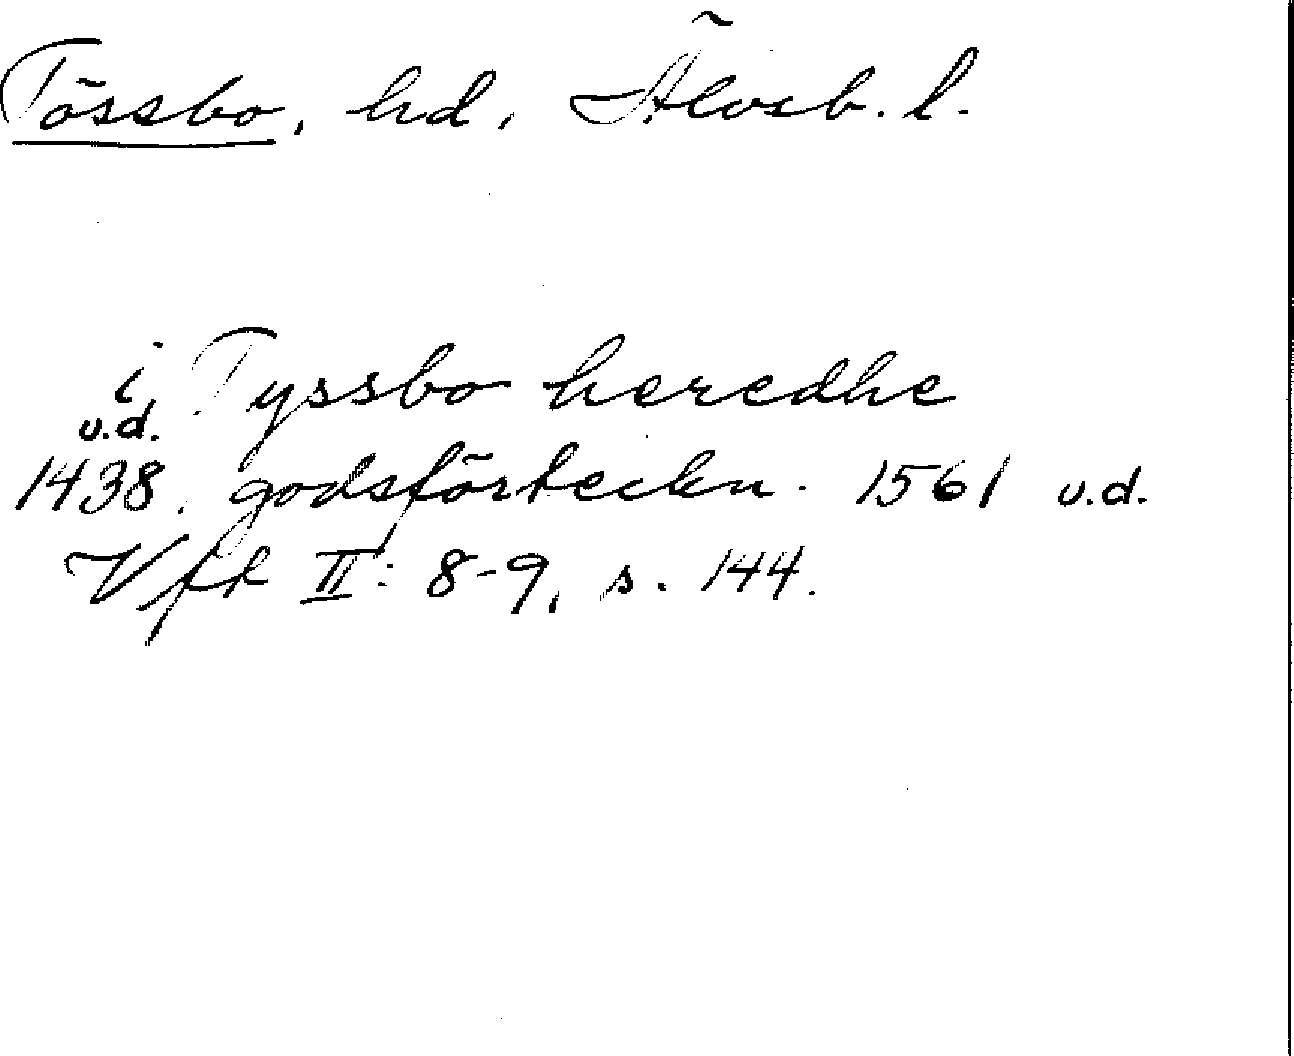 Tössbo, hd, Älvsb. l.
i Tyssbo heredhe
u.d.
1438, godsförteckn. 1561 u.d.
Vfk II: 8-9, s. 144.